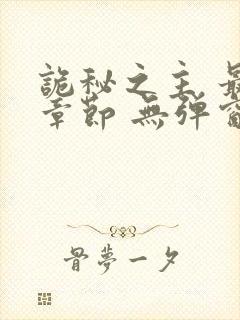 詭秘之主 最
章節 無彈窗
骨夢一夕